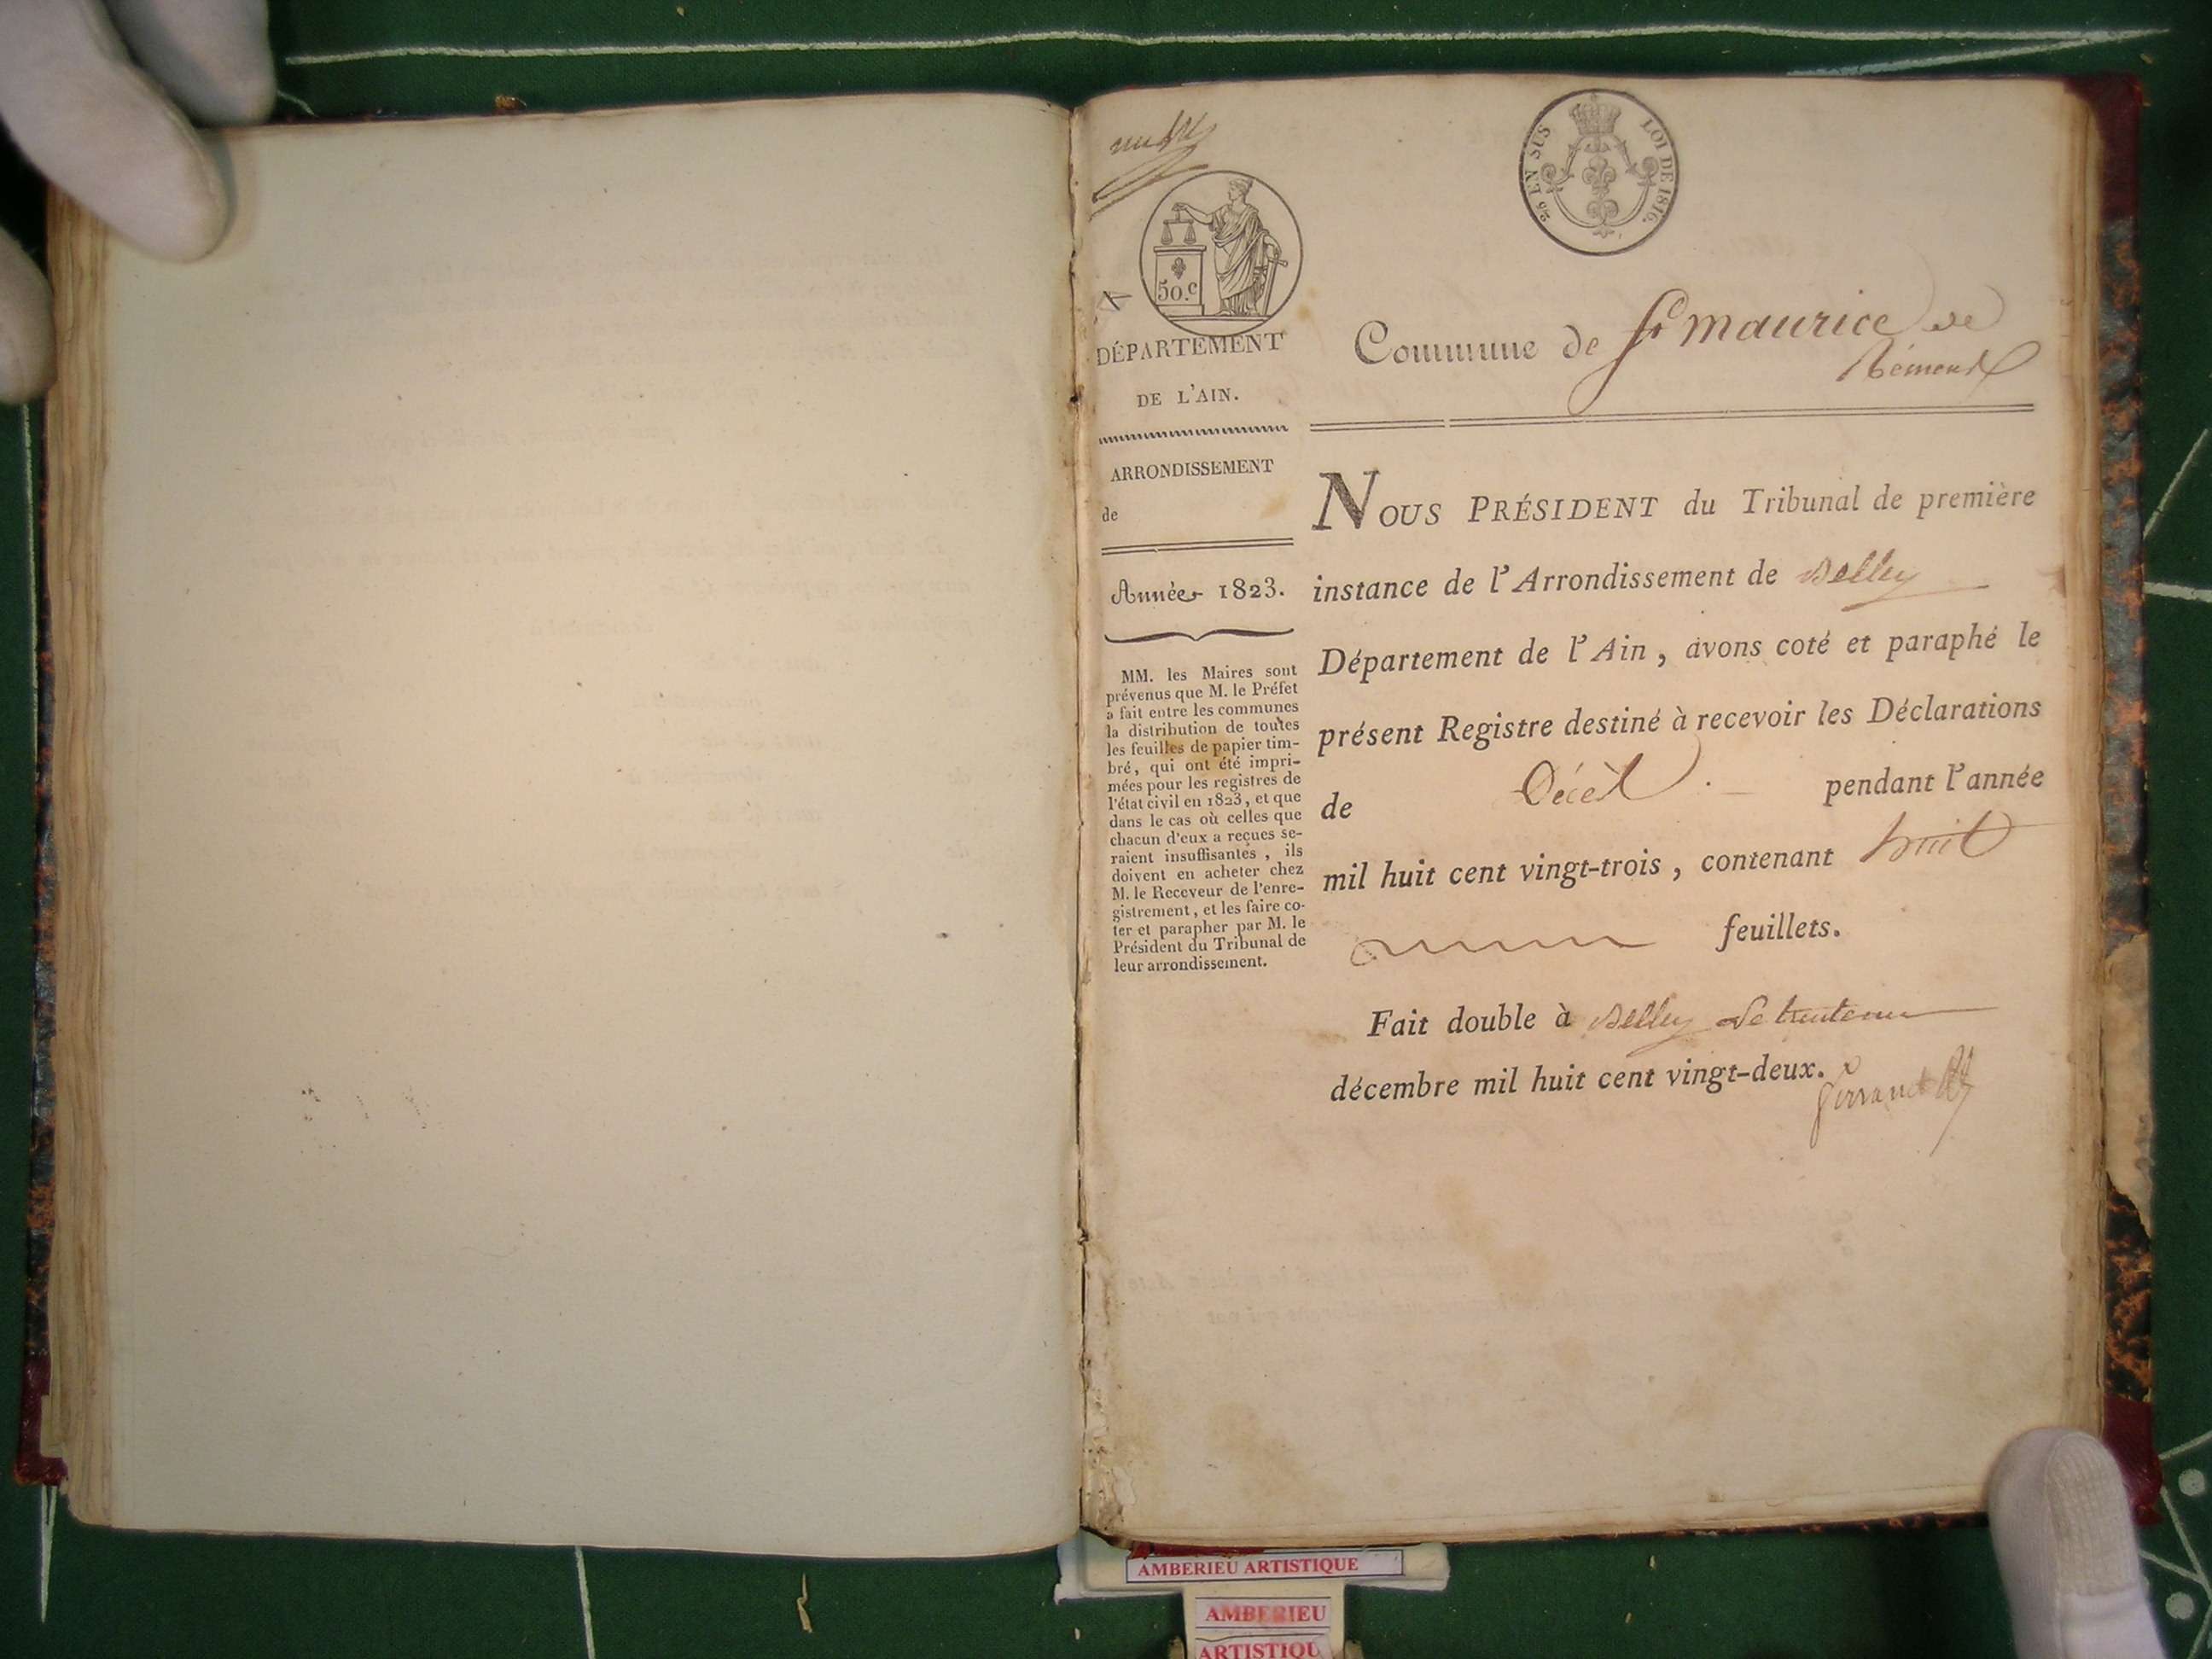 25 EN SUS
LOI DE 1816.
50.c
DÉPARTEMENT
DE L'AIN.
ARRONDISSEMENT
de
Année 1823.
MM. les Maires sont
prévenus que M. le Préfet
a fait entre les communes
la distribution de toutes
les feuilles de papier tim-
bré, qui ont été impri-
mées pour les registres de
l'état civil en 1823, et que
dans le cas où celles que
chacun d'eux a reçues se-
raient insuffisantes, ils
doivent en acheter chez
M. le Receveur de l'enre-
gistrement, et les faire co-
ter et parapher par M. le
Président du Tribunal de
leur arrondissement.
Commune de St maurice de
Rémens
NOUS PRÉSIDENT du Tribunal de première
instance de l'Arrondissement de Belley
Département de l'Ain, avons coté et paraphé le
présent Registre destiné à recevoir les Déclarations
de Décès pendant l'année
mil huit cent vingt-trois, contenant huit
feuillets.
Fait double à Belley le trente un
décembre mil huit cent vingt-deux.
AMBERIEU ARTISTIQUE
AMBERIEU
ARTISTIQU